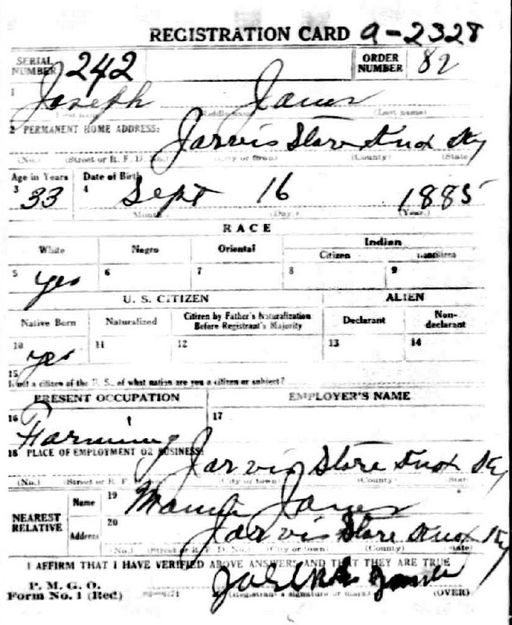 REGISTRATION CARD a-2328
SERIAL NUMBER 242 ORDER NUMBER 82
1 Joseph James
(Last name)
2 PERMANENT HOME ADDRESS: Jarvis Store Knox Ky
(No.) (Street or R. F. D. No.) (City or town) (County) (State)
Age in Years Date of Birth
3 33 4 Sept 16 1885
Month (Day.) (Year.)
RACE
White Negro Oriental Indian
Citizen
5 yes 6 7 8 9
U. S. CITIZEN ALIEN
Native Born Naturalized Citizen by Father's Naturalization Before Registrant's Majority Declarant Non-declarant
10 yes 11 12 13 14
15 If not a citizen of the U. S., of what nation are you a citizen or subject?
PRESENT OCCUPATION EMPLOYER'S NAME
16 Farming 17
18 PLACE OF EMPLOYMENT OR BUSINESS: Jarvis Store Knox Ky
(No.) (Street or R. F. D. No.) (City or town) (County) (State)
NEAREST RELATIVE Name 19 James
Address 20 Jarvis Store Knox Ky
(No.) (Street or R. F. D. No.) (City or town) (County) (State)
I AFFIRM THAT I HAVE VERIFIED ABOVE ANSWERS AND THAT THEY ARE TRUE
P. M. G. O.
Form No. 1 (Red) (Registrant's signature or mark) (OVER)